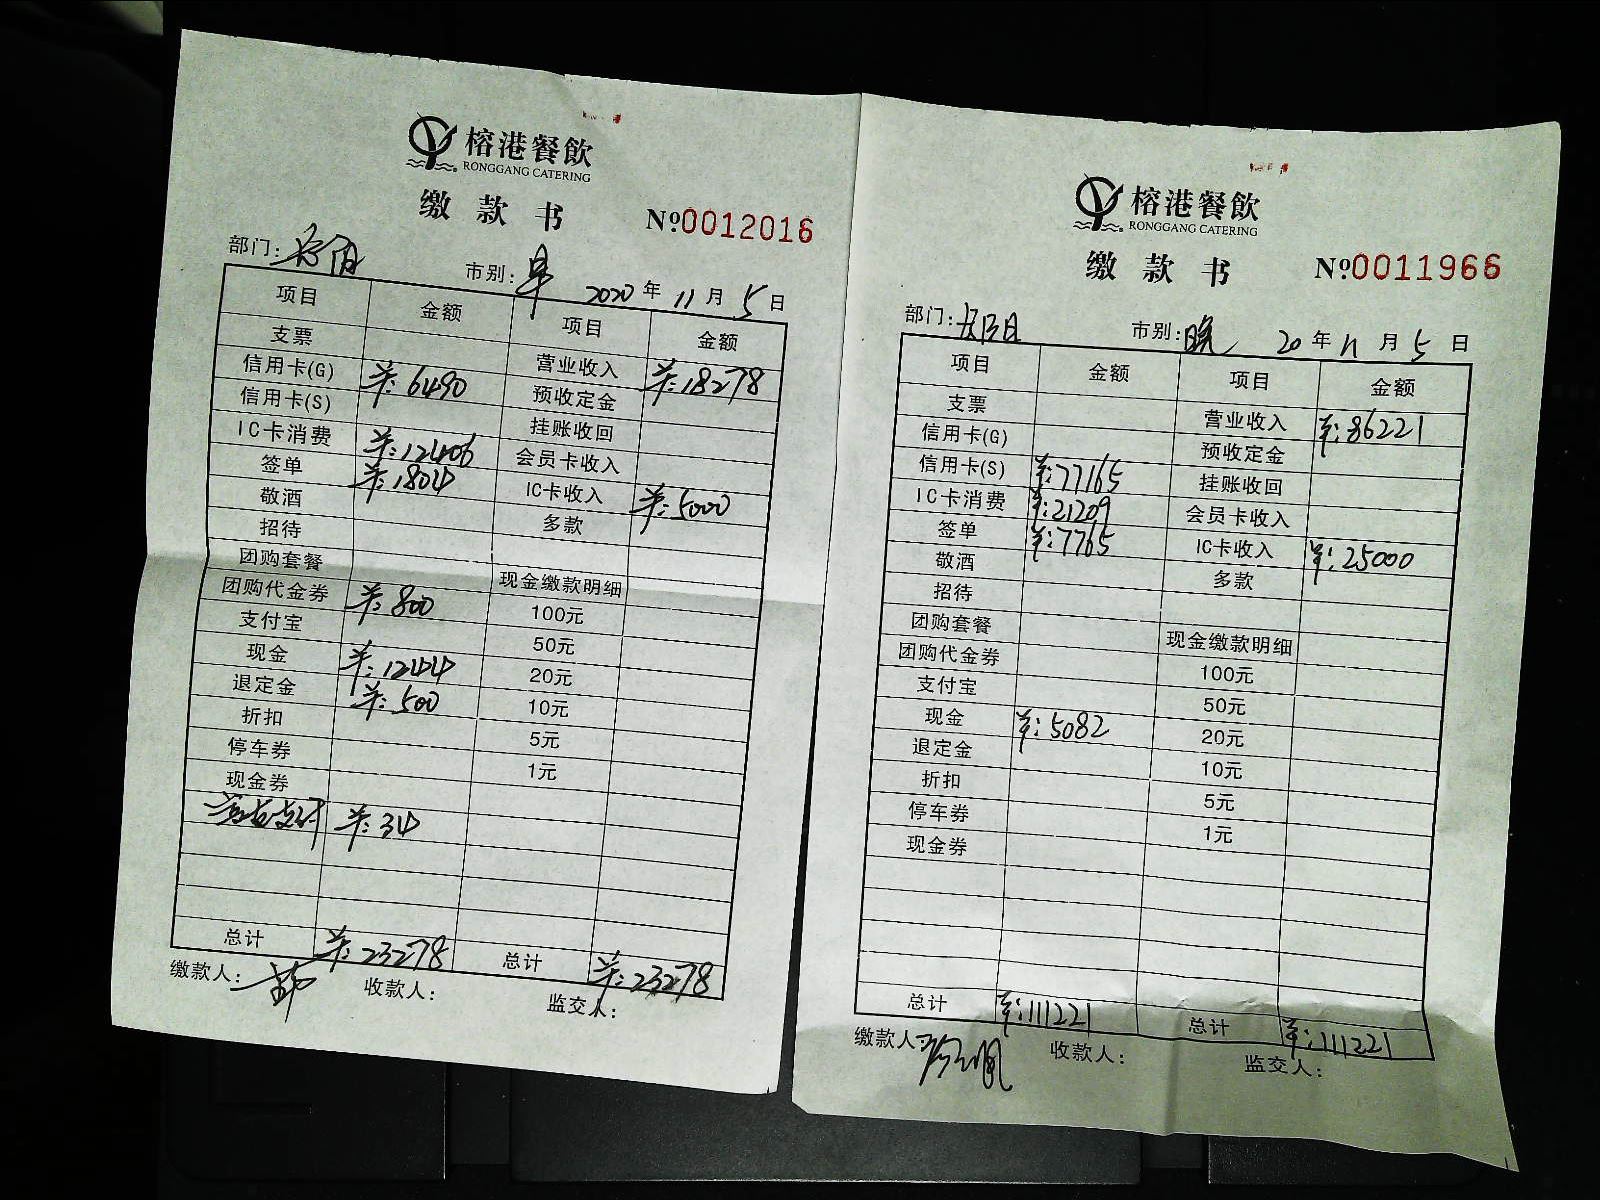 榕港餐飲
RONGGANG CATERING
缴款书 №0012016
部门: 市别: 早 2020年11月5日
项目 金额 项目 金额
支票 营业收入 羊:18278
信用卡(G) 羊:6490 预收定金
信用卡(S) 挂账收回
IC卡消费 羊:12406 会员卡收入
签单 羊:1804 IC卡收入 羊:5000
敬酒 多款
招待
团购套餐 现金缴款明细
团购代金券 羊:800 100元
支付宝 50元
现金 羊:1244 20元
退定金 羊:500 10元
折扣 5元
停车券 1元
现金券
支付 羊:34
总计 羊:23278 总计 羊:23278
缴款人: 收款人: 监交人:
榕港餐飲
RONGGANG CATERING
缴款书 №0011966
部门: 市别: 晚 2020年11月5日
项目 金额 项目 金额
支票 营业收入 羊:86221
信用卡(G) 预收定金
信用卡(S) 羊:77165 挂账收回
IC卡消费 羊:21209 会员卡收入
签单 羊:7765 IC卡收入 羊:25000
敬酒 多款
招待
团购套餐 现金缴款明细
团购代金券 100元
支付宝 50元
现金 羊:5082 20元
退定金 10元
折扣 5元
停车券 1元
现金券
总计 羊:111221 总计 羊:111221
缴款人: 收款人: 监交人: